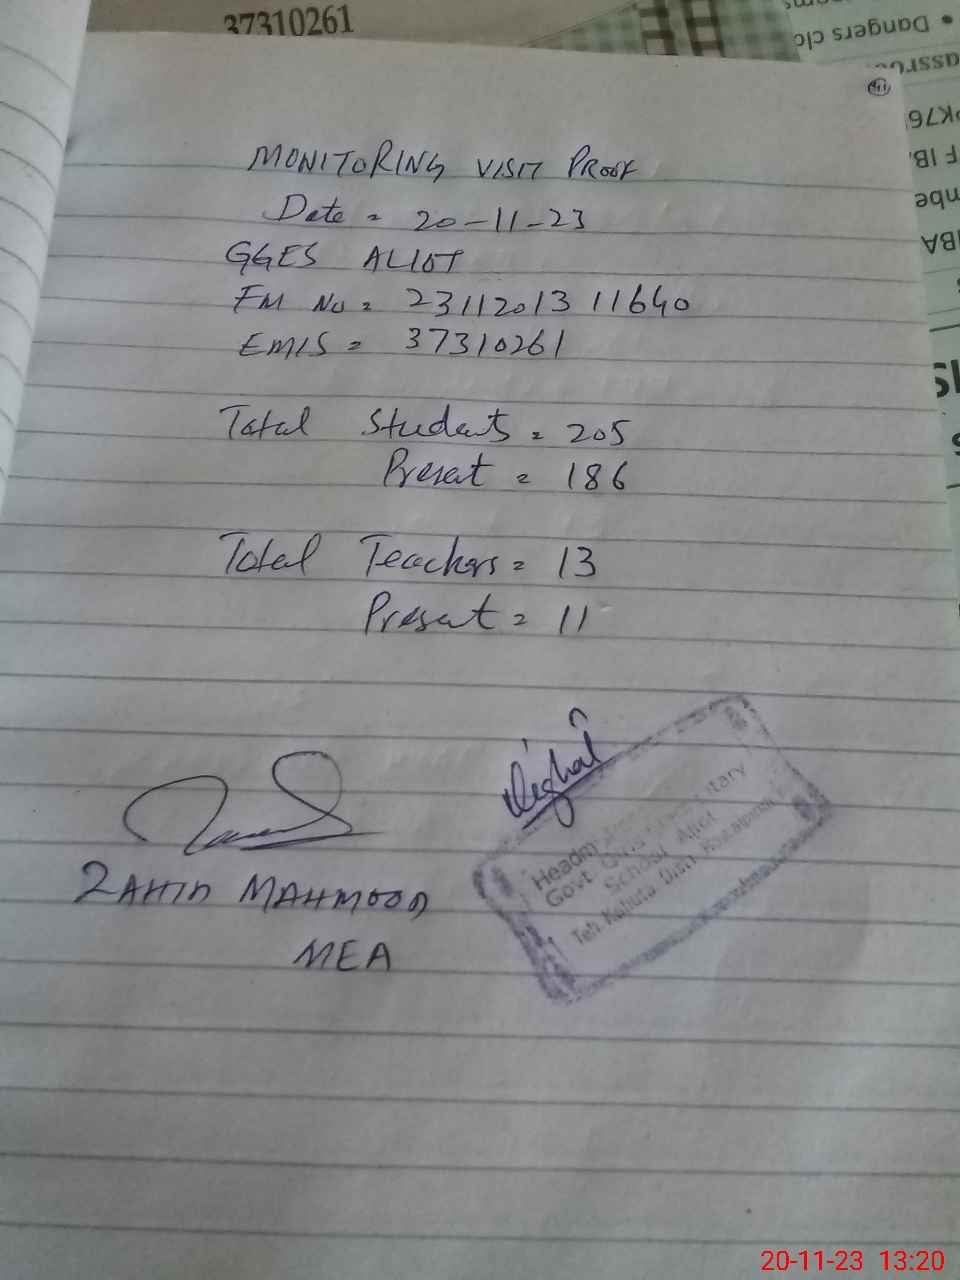 37310261
Dangers clo
assroo
PK76
F IB
mbe
IBA
MONITORING VISIT PROOF
Date = 20-11-23
GGES ALIOT
FM No = 2311201311640
EMIS = 37310261
Total Students = 205
Present = 186
Total Teachers = 13
Present = 11
ZAHID MAHMOOD
MEA
Headm
Govt Girls Elementary
School Aliot
Teh. Kahuta Distt Rawalpindi
20-11-23 13:20